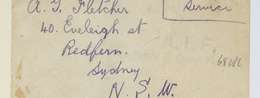 A. J. Fletcher
Service
40. Eveleigh st
Redfern.
Sydney
N. S. W.